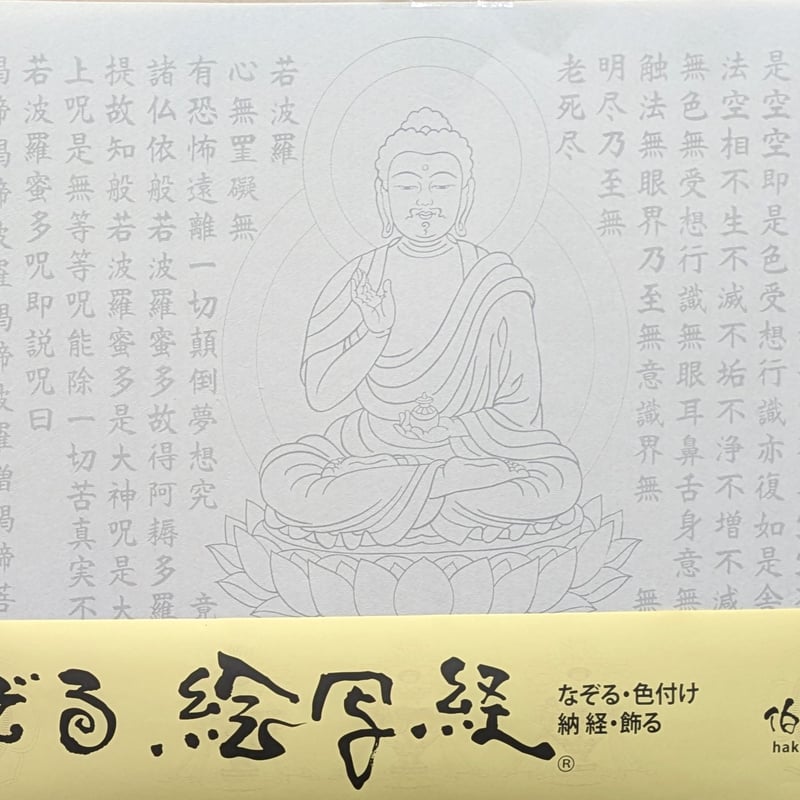 是空空即是色受想行識亦復如是舎
法空相不生不滅不垢不浄不増不減
無色無受想行識無眼耳鼻舌身意無
触法無眼界乃至無意識界無無
明尽乃至無
老死尽
若波羅
心無罣礙無
有恐怖遠離一切顛倒夢想究竟
諸仏依般若波羅蜜多故得阿耨多羅
提故知般若波羅蜜多是大神呪是大
上呪是無等等呪能除一切苦真実不
若波羅蜜多呪即説呪曰
羯諦羯諦波羅羯諦波羅僧羯諦菩
ぞる・絵写経®
なぞる・色付け
納経・飾る
伯
hak